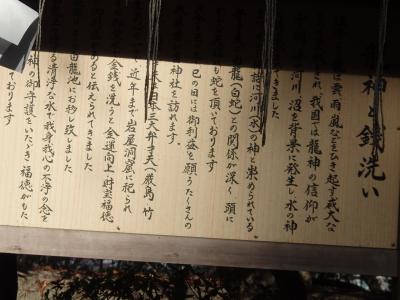 神と銭洗い
は雲雨嵐などをひき起す戎大な
され、我国では龍神の信仰が
河川、沼を背景に発生し水の神
きました
諸に河川(水)の神と崇められている。
龍(白蛇)との関係が深く、頭に
も蛇を頂いております
巳の日には御利益を願うたくさんの
神社を訪れます。
来は日本三大弁才天(厳島、竹
近年まで岩屋洞窟に祀られ
金銭を洗うと金運向上、財宝福徳
あると伝えられてきました
白龍池にお移し致しました
る清浄な水で我身我心の不浄の念を
神の御守護をいただき福徳がもた
ております